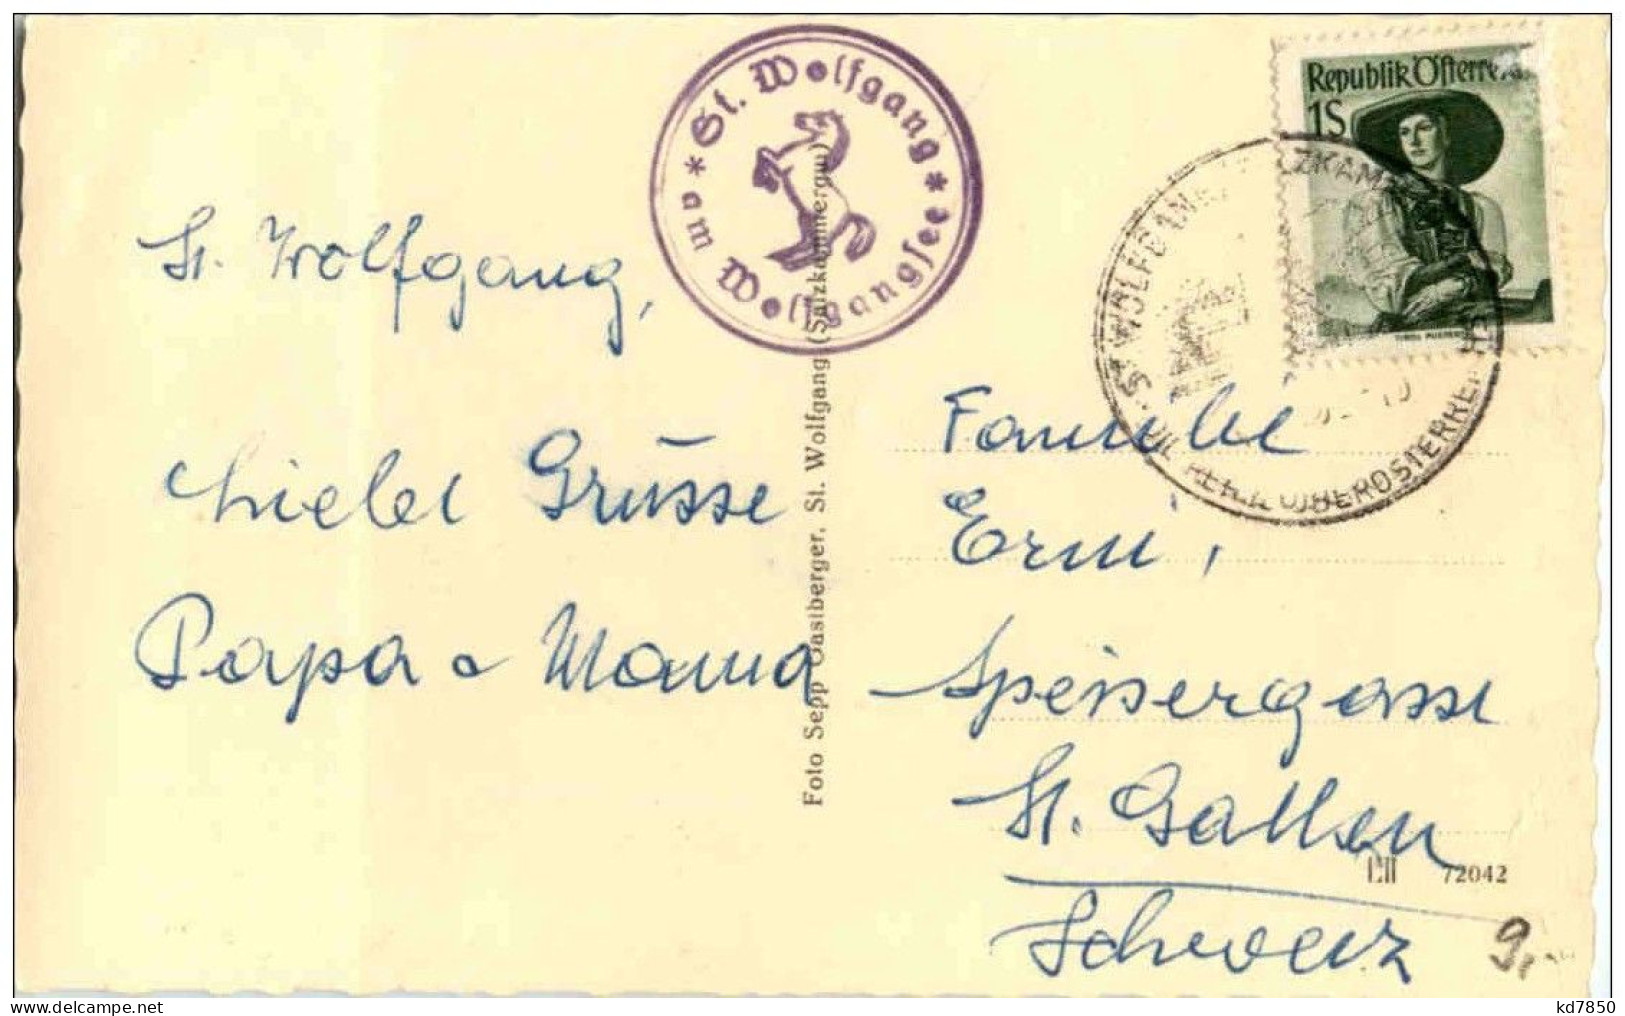 St. Wolfgang
am Wolfgangsee
Republik Österreich
1S
ST. WOLFGANG
OBERÖSTERREICH
St. Wolfgang,
Liebe Grüsse
Papa & Mama
Foto Sepp Oastberger, St. Wolfgang (Salzkammergut)
Familie
Erni,
Speisergasse
St. Gallen
Schweiz
72042
9,-
kd7850